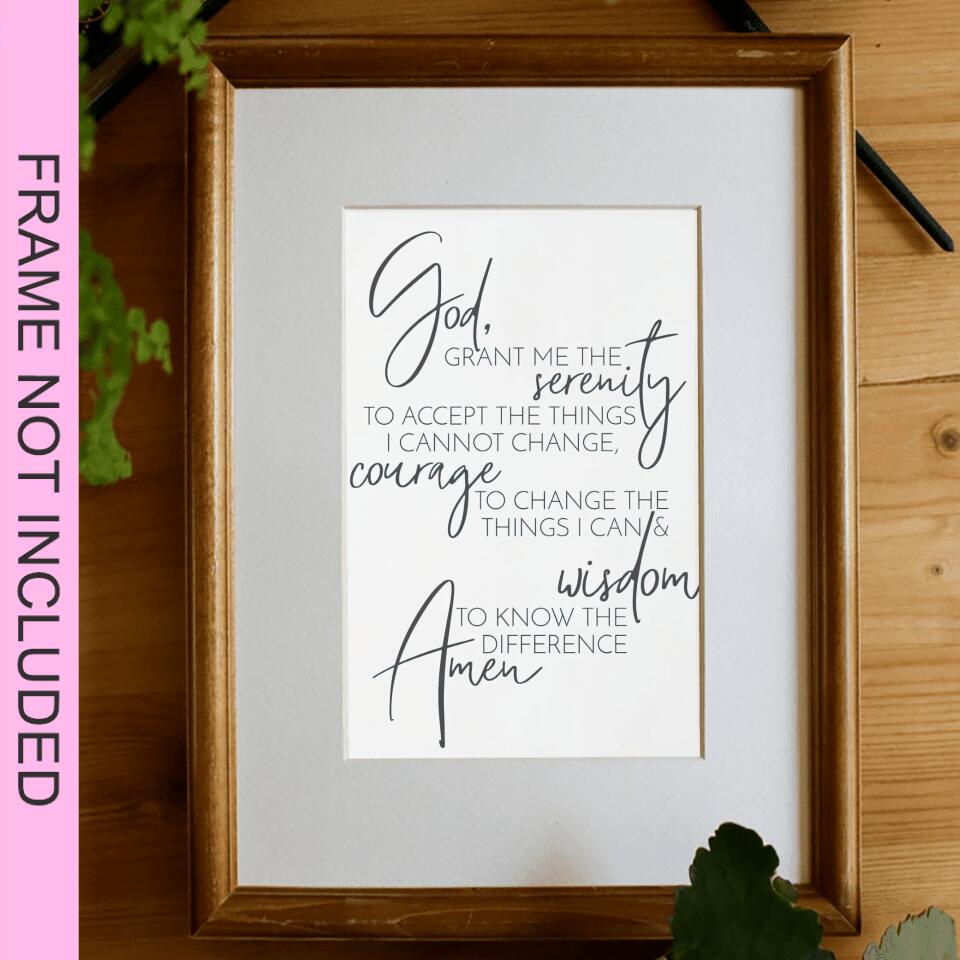 FRAME NOT INCLUDED
God,
GRANT ME THE
serenity
TO ACCEPT THE THINGS
I CANNOT CHANGE,
courage
TO CHANGE THE
THINGS I CAN &
wisdom
TO KNOW THE
DIFFERENCE
Amen